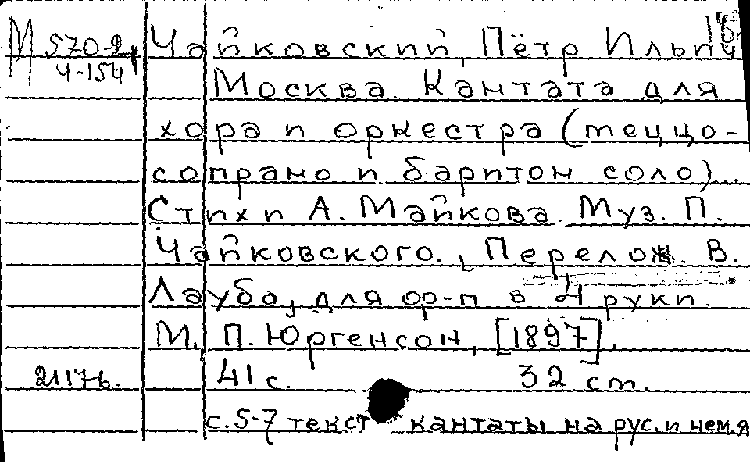 М 570-2, Чайковский, Пётр Ильич
Ч-154
Москва. Кантата для
хора и оркестра (меццо-
сопрано и баритон соло)..
Стихи А. Майкова. Муз. П.
Чайковского., Перелож. В.
Лауба, для ф-п в 4 руки.
М. П. Юргенсон, [1897].
41 с. 32 см.
с. 5-7 текст кантаты на рус. и нем. я